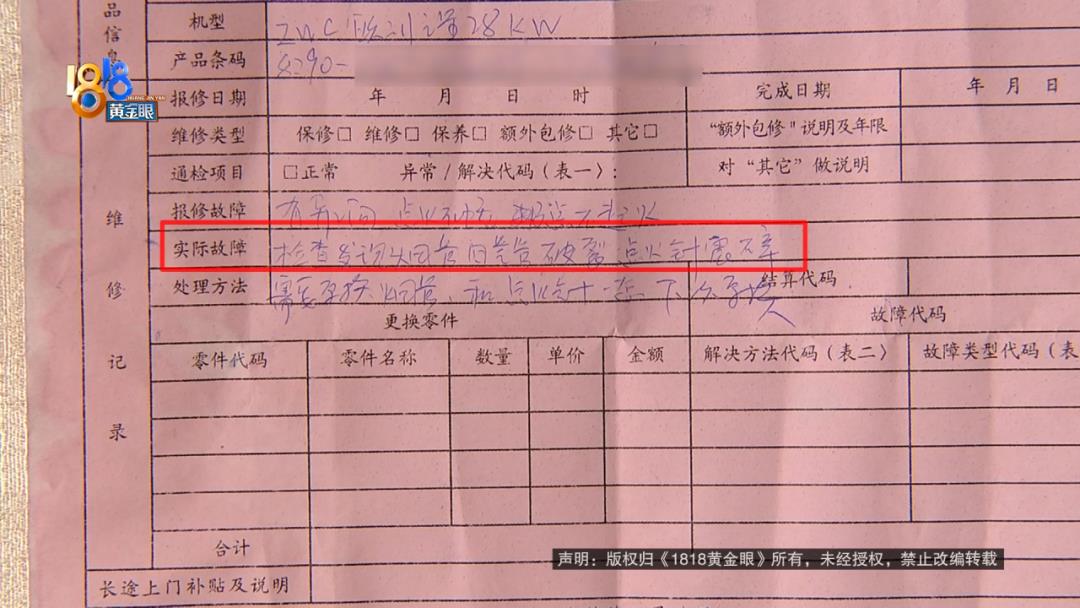 品信息
机型 ZWC 28KW
产品条码 8290-
1818
黄金眼
报修日期 年 月 日 时 完成日期 年 月 日
维修类型 保修□ 维修□ 保养□ 额外包修□ 其它□ “额外包修”说明及年限
通检项目 □正常 异常/解决代码(表一): 对“其它”做说明
维修记录
报修故障
实际故障 检查发现 破裂 点火针
处理方法 需要更换 和点火针一起 下次 结算代码
更换零件 故障代码
零件代码 零件名称 数量 单价 金额 解决方法代码(表二) 故障类型代码(表
合计
声明:版权归《1818黄金眼》所有,未经授权,禁止改编转载
长途上门补贴及说明